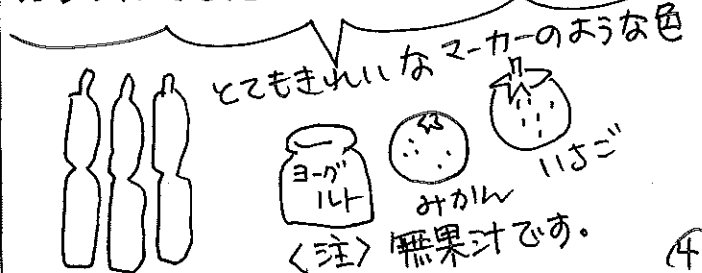 とてもきれいなマーカーのような色
ヨーグ
ルト
みかん
いちご
〈注〉無果汁です。